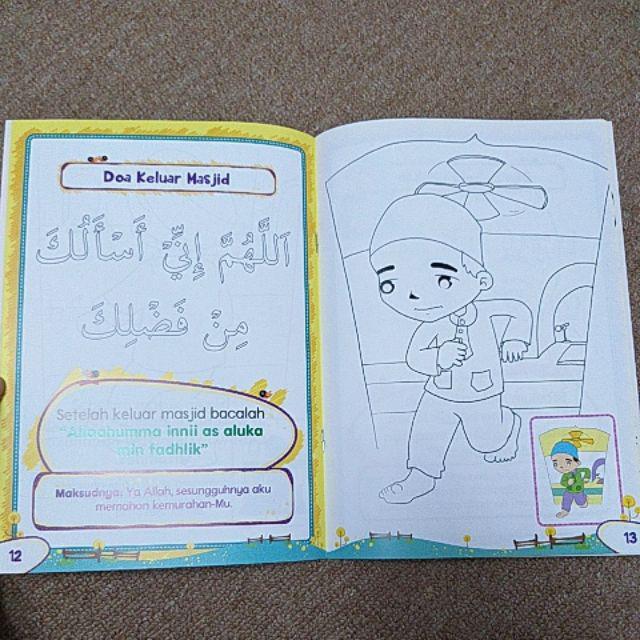 Doa Keluar Masjid
اَللَّهُمَّ إِنِّيْ أَسْأَلُكَ
مِنْ فَضْلِكَ
Setelah keluar masjid bacalah
"Allaahumma innii as aluka
min fadhlik"
Maksudnya: Ya Allah, sesungguhnya aku
memohon kemurahan-Mu.
12
13